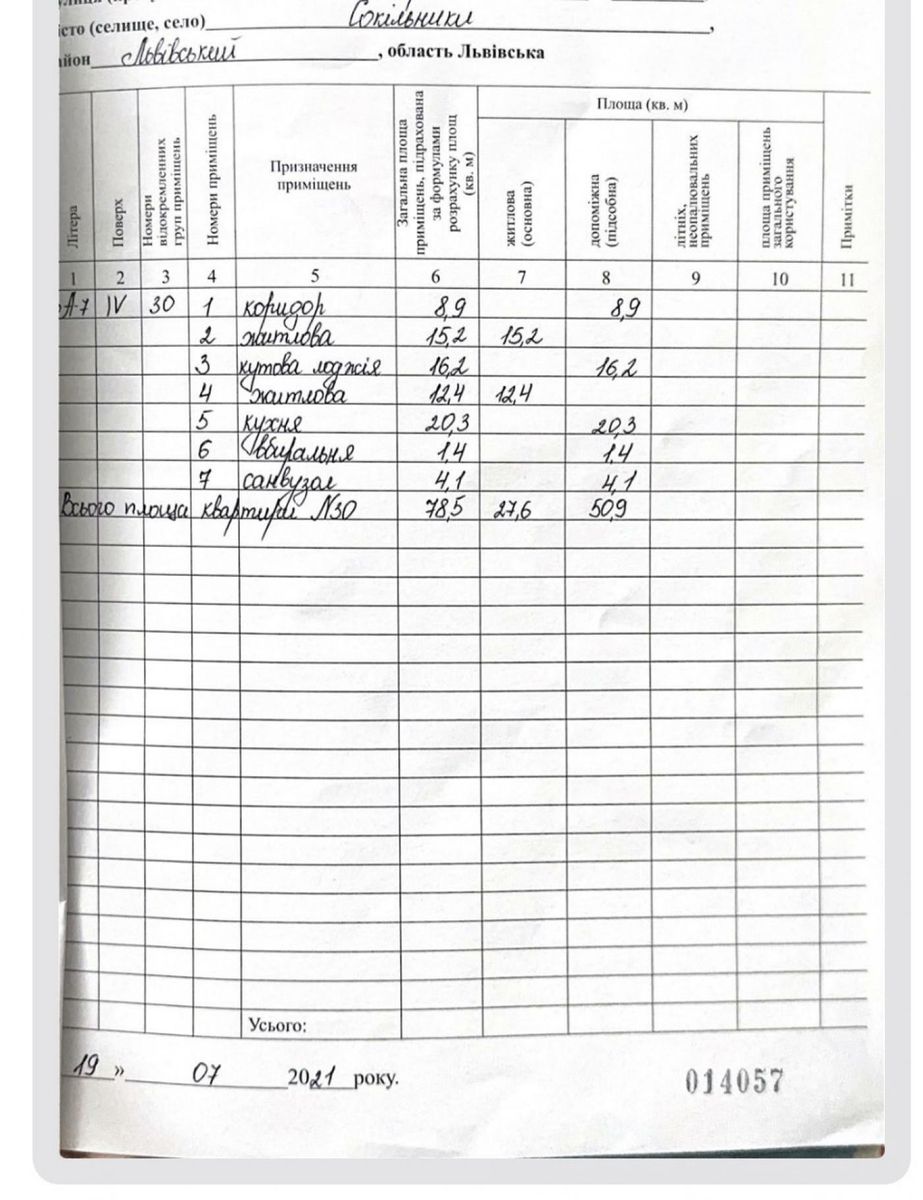 істо (селище, село) Сокільники,
айон Львівський, область Львівська
Літера
Поверх
Номери відокремленних груп приміщень
Номери приміщень
Призначення приміщень
Загальна площа приміщень, підрахована за формулами розрахунку площ (кв. м)
Площа (кв. м)
житлова (основна)
допоміжна (підсобна)
літніх, неопалювальних приміщень
площа приміщень загального користування
Примітки
1 2 3 4 5 6 7 8 9 10 11
А-7 IV 30 1 коридор 8,9 8,9
2 житлова 15,2 15,2
3 кутова лоджія 16,2 16,2
4 житлова 12,4 12,4
5 кухня 20,3 20,3
6 Вбиральня 1,4 1,4
7 санвузол 4,1 4,1
Всього площа квартири N30 78,5 27,6 50,9
Усього:
19 » 07 2021 року.
014057